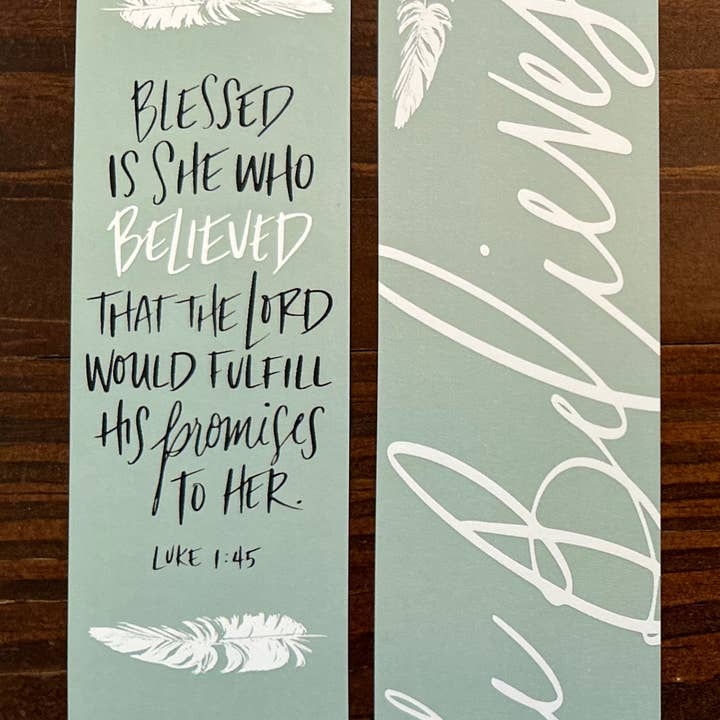 BLESSED
IS SHE WHO
BELIEVED
THAT THE LORD
WOULD FULFILL
HIS promises
TO HER.
LUKE 1:45
Believes